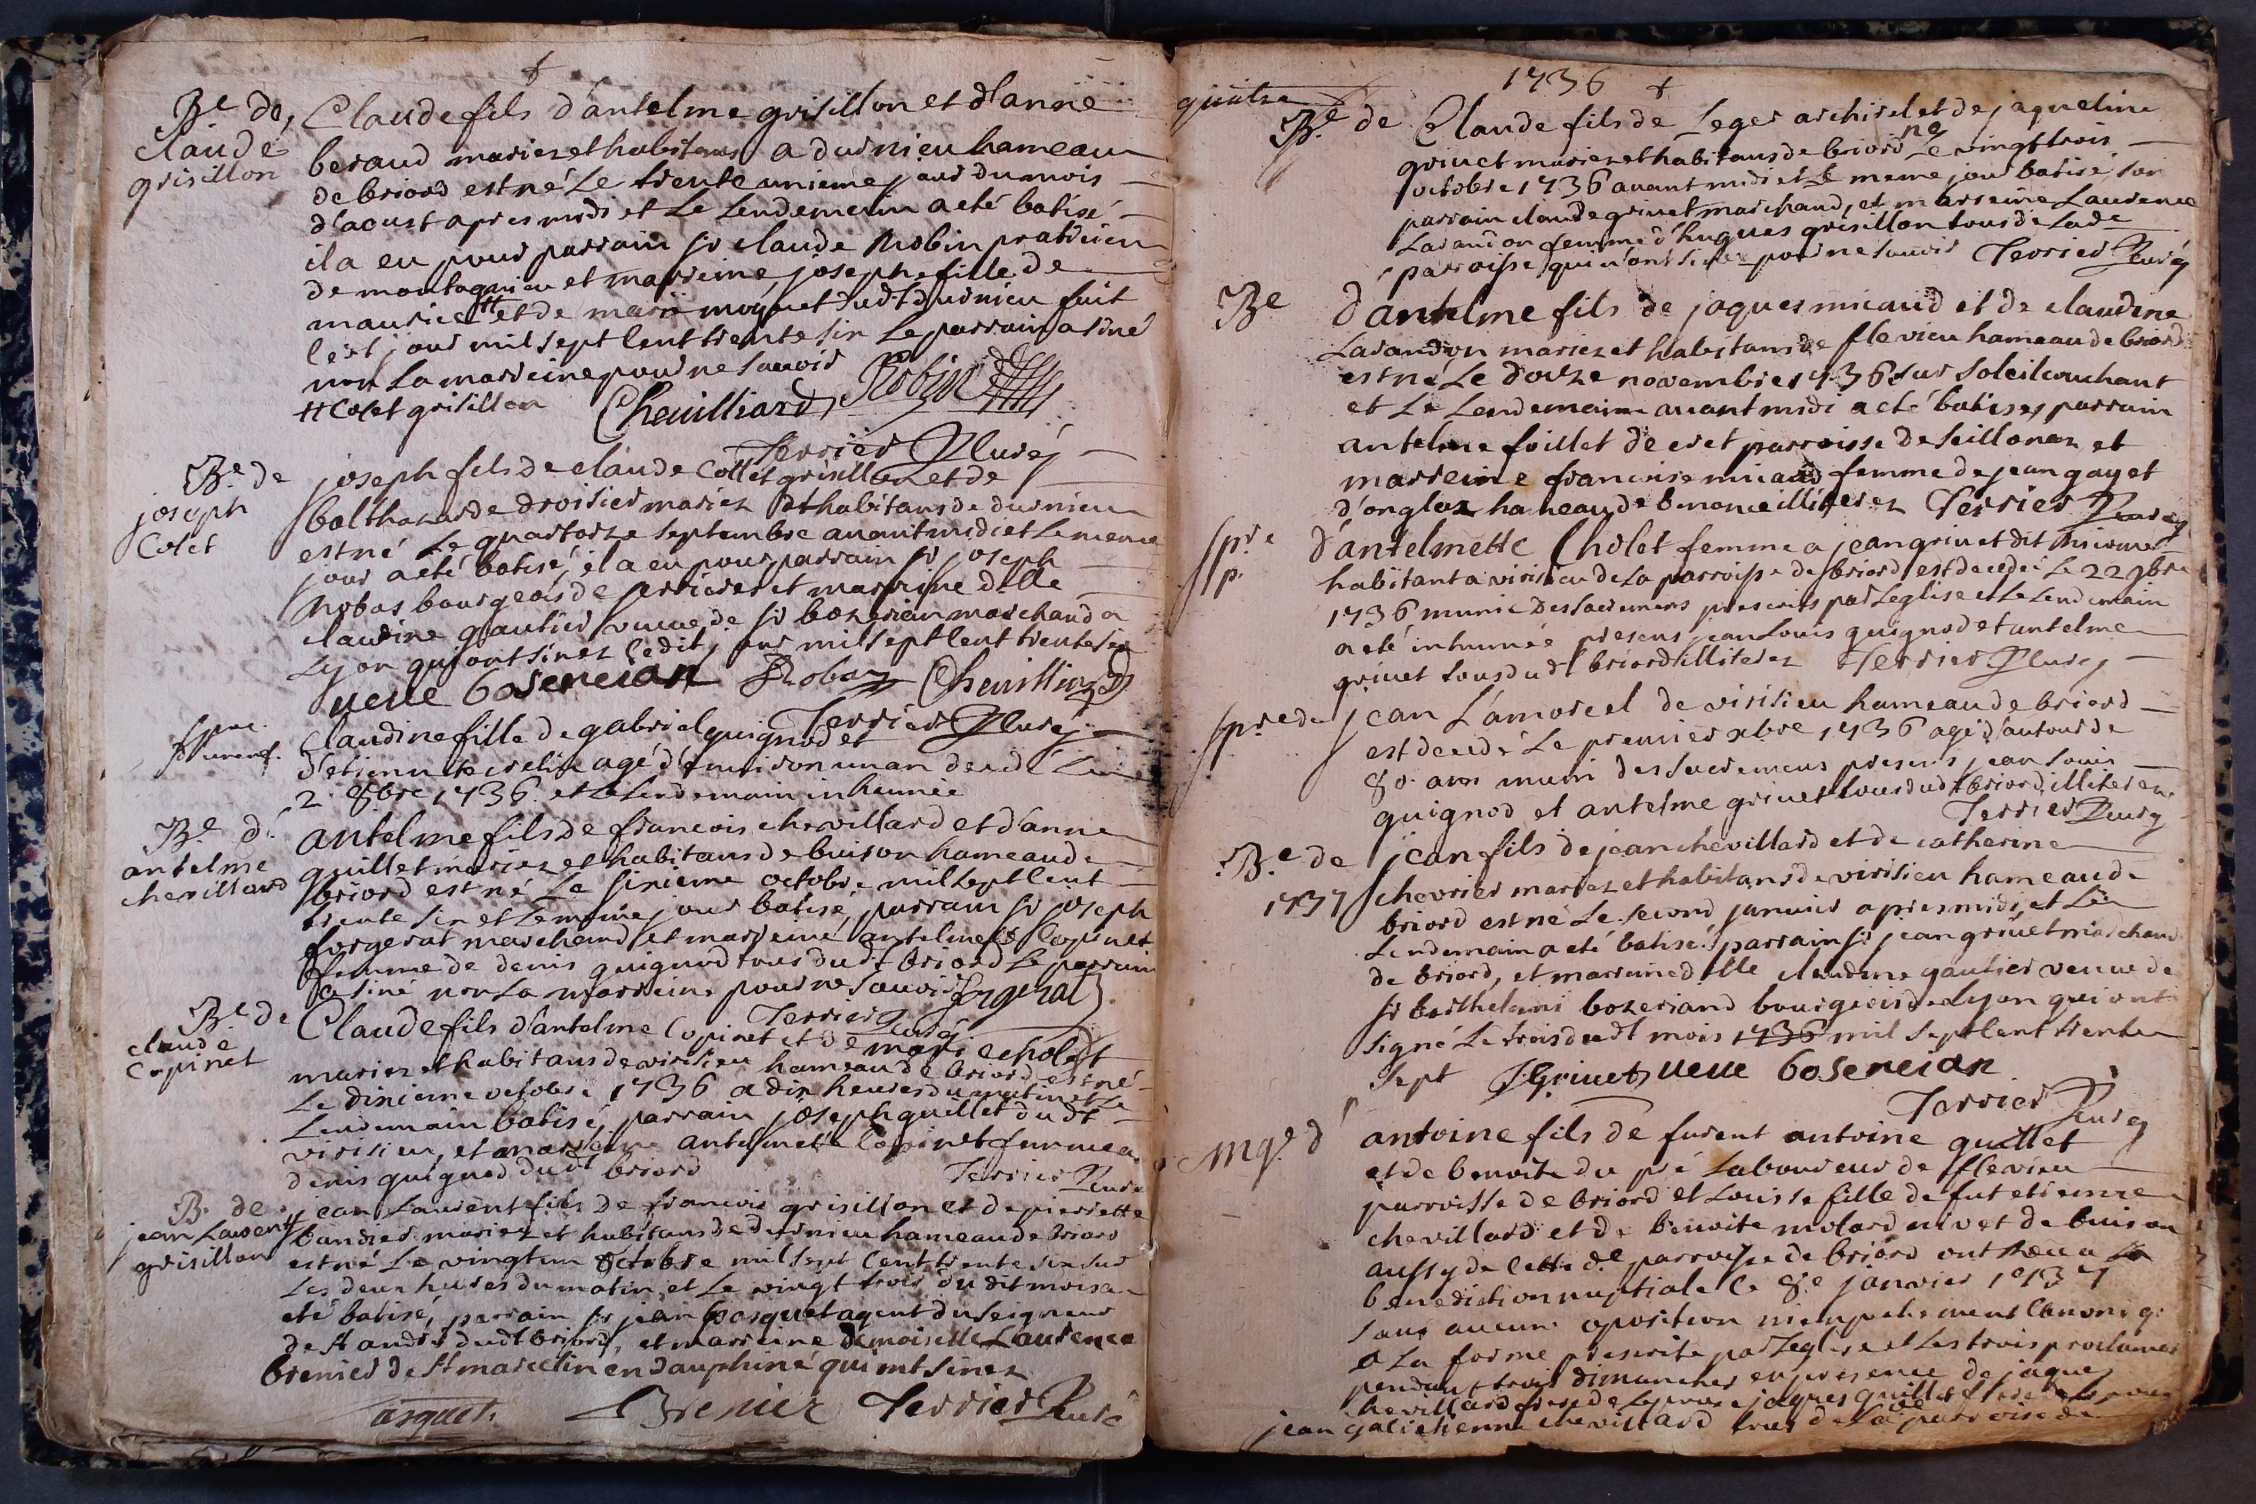 Be de, Claude fils d'antelme grisillon et d'anne
claude beraud mariez et habitans a durnieu hameau
grisillon de briord est né Le trente unieme jour du mois
d'aoust apres midi et Le Lendemain a eté batisé
il a eu pour parrain sr claude Robin praticien
de montagnieu et marreine, josephe fille de
maurice # et de marie moguet dudt durnieu fait
lesd jour mil sept cent trente six Le parrain a siné
non La marreine pour ne sauoir
# Colet grisillon Cheuilliard Robin
Terrier Curé
Be de joseph fils de claude Collet grisillon et de
joseph balthazarde droisier mariez et habitans de durnieu
Colet est né Le quartorze septembre auant midi et Le meme
jour a eté batisé, il a eu pour parrain sr joseph
Robas bourgeois de serrieres et marreine dlle
claudine gautier veuue de sr bozerian marchand a
Lyon qui ont sinez Ledit jour mil sept cent trente six
ueue bosereian Robaz Cheuilliard
Terrier Curé
Claudine fille de gabriel guignod et
d'etiennette agé d'enuiron un an decedé Le
2. 8bre 1736. et Le Lendemain inhumée
Be d' antelme fils de francois chevillard et d'anne
antelme guillet mariez et habitans de buison hameau de
chevillard briord est né Le sixieme octobre mil sept cent
trente six et Le meme jour batisé, parrain sr joseph
forgerat marchand et marreine antelmette Copinet
femme de denis guignod tous dudt briord Le parrain
a siné non La marreine pour ne sauoir forgerat
Terrier Curé
Be de Claude fils d'antelme Copinet et de marie cholet
claude mariez et habitans de virisieu hameau de briord est né
Copinet Le dixieme octobre 1736 a dix heures du matin et Le
Lendemain batisé, parrain joseph guillet dudt
virisieu, et marreine antelmette Copinet femme a
denis guignod dudt briord Terrier Curé
B. de jean Laurent fils de francois grisillon et de pierrette
jean Laurent bandier mariez et habitans de durnieu hameau de briord
grisillon est né Le vingt un octobre mil sept cent trente six sur
Les deux heures du matin, et Le vingt trois dudit mois a
eté batisé, parrain sr jean basquet agent du seigneur
de st andré dudt briord, et marreine demoiselle Laurence
brenier de st marcelin en dauphiné qui ont sinez
asquet. Brenier Terrier Curé
1736
Be de Claude fils de Leger archirel et de jaqueline
griuet mariez et habitans de briord né Le vingt trois
octobre 1736 auant midi et Le meme jour batisé son
parrain claude griuet marchand, et marreine Laurence
Larandon femme d'hugues grisillon tous de Lade
parroisse qui n'ont siné pour ne sauoir Terrier Curé
Be d'antelme fils de jaques micaud et de claudine
Larandon mariez et habitans de flevieu hameau de briord
est né Le douze novembre 1736 sur soleil couchant
et Le Lendemain auant midi a eté batisé, parrain
antelme foillet de cret parroisse de seillonaz et
marreine francoise micaud femme de jean gayet
d'onglaz hameau de illiterez Terrier Curé
spre d'antelmette Cholet femme a jean griuet dit
p. habitant a virisieu de La parroisse de briord est decedée Le 22 9bre
1736, munie des sacremens prescrits par L'eglise et Le Lendemain
a eté inhumée presens jean Louis guignod et antelme
griuet tous dudt briord illiterez Terrier Curé
spre de jean Lamorcel de virisieu hameau de briord
est decedé Le premier xbre 1736 agé d'autour de
80. ans muni des sacremens presens jean Louis
guignod et antelme griuet tous dudt briord illiterez
Terrier Curé
Be de jean fils de jean chevillard et de catherine
1737 chevrier mariez et habitans de virisieu hameau de
briord est né Le second januier apres midi, et Le
Lendemain a eté batisé parrain sr jean griuet marchand
de briord, et marreine dlle claudine gautier veuue de
sr barthelemi bozeriand bourgeois de Lyon qui ont
signé Le trois dudt mois 1736 mil sept cent trente
sept JGriuet ueue bosereian
Terrier Curé
Mge d' antoine fils de furent antoine guillet
et de benoite du pré Laboureur de flevieu
parroisse de briord et Louise fille de fut etienne
chevillard et de benoite molard nivet de buison
aussy de cette de parroisse de briord ont recu a
benediction nuptiale Le 8e janvier 1737
sans aucune oposition ni empechement Canoniq.
a La forme prescrite par L'eglise et Les trois proclames
pendant trois dimanches en presence de jaque
chevillard frere de L'epouse jaques guillet frere de L'epoux
jean etienne chevillard tous de La parroisse de